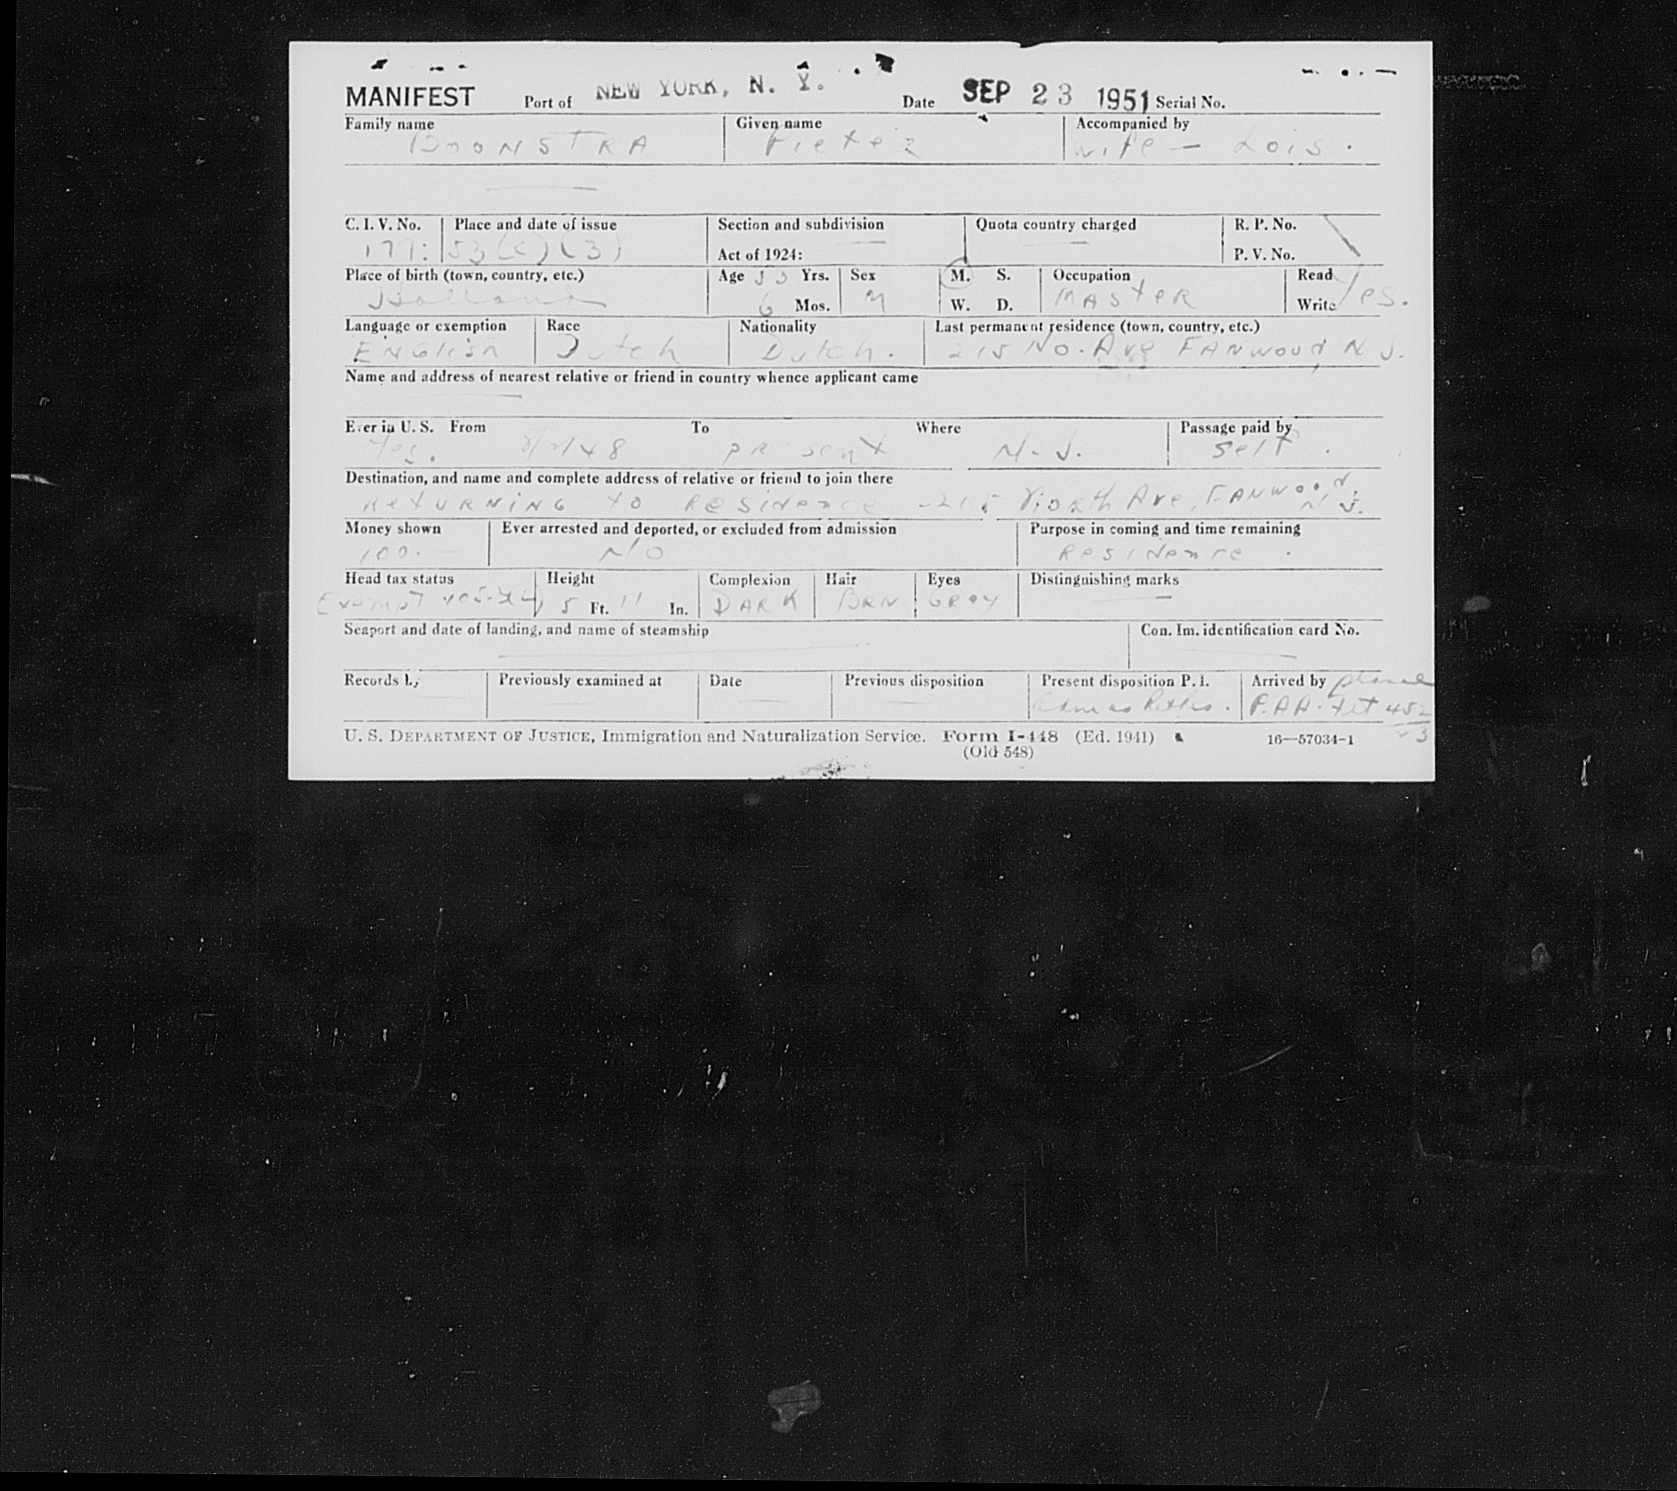 MANIFEST Port of NEW YORK, N. Y. Date SEP 23 1951 Serial No.
Family name Given name Accompanied by
BOONSTRA Pieter wife — Lois.
C. I. V. No. Place and date of issue Section and subdivision Quota country charged R. P. No.
Act of 1924: P. V. No.
Place of birth (town, country, etc.) Age Yrs. Sex M. S. Occupation Read Yes.
Holland 6 Mos. M W. D. MASTER Write
Language or exemption Race Nationality Last permanent residence (town, country, etc.)
ENGlish Dutch Dutch. 215 No. Ave FANWOOD N J.
Name and address of nearest relative or friend in country whence applicant came
Ever in U. S. From To Where Passage paid by
Yes. present N. J. Self
Destination, and name and complete address of relative or friend to join there
RETURNING TO RESidence - 215 North Ave, FANWOOD, N J.
Money shown Ever arrested and deported, or excluded from admission Purpose in coming and time remaining
100. NO Residence.
Head tax status Height Complexion Hair Eyes Distinguishing marks
Exempt 5 Ft. 11 In. DARK BRN GRAY
Seaport and date of landing, and name of steamship Con. Im. identification card No.
Records by Previously examined at Date Previous disposition Present disposition P. I. Arrived by plane
P.A.A. 452
U. S. DEPARTMENT OF JUSTICE, Immigration and Naturalization Service. Form I-448 (Ed. 1941) 16—57034-1
(Old 548)